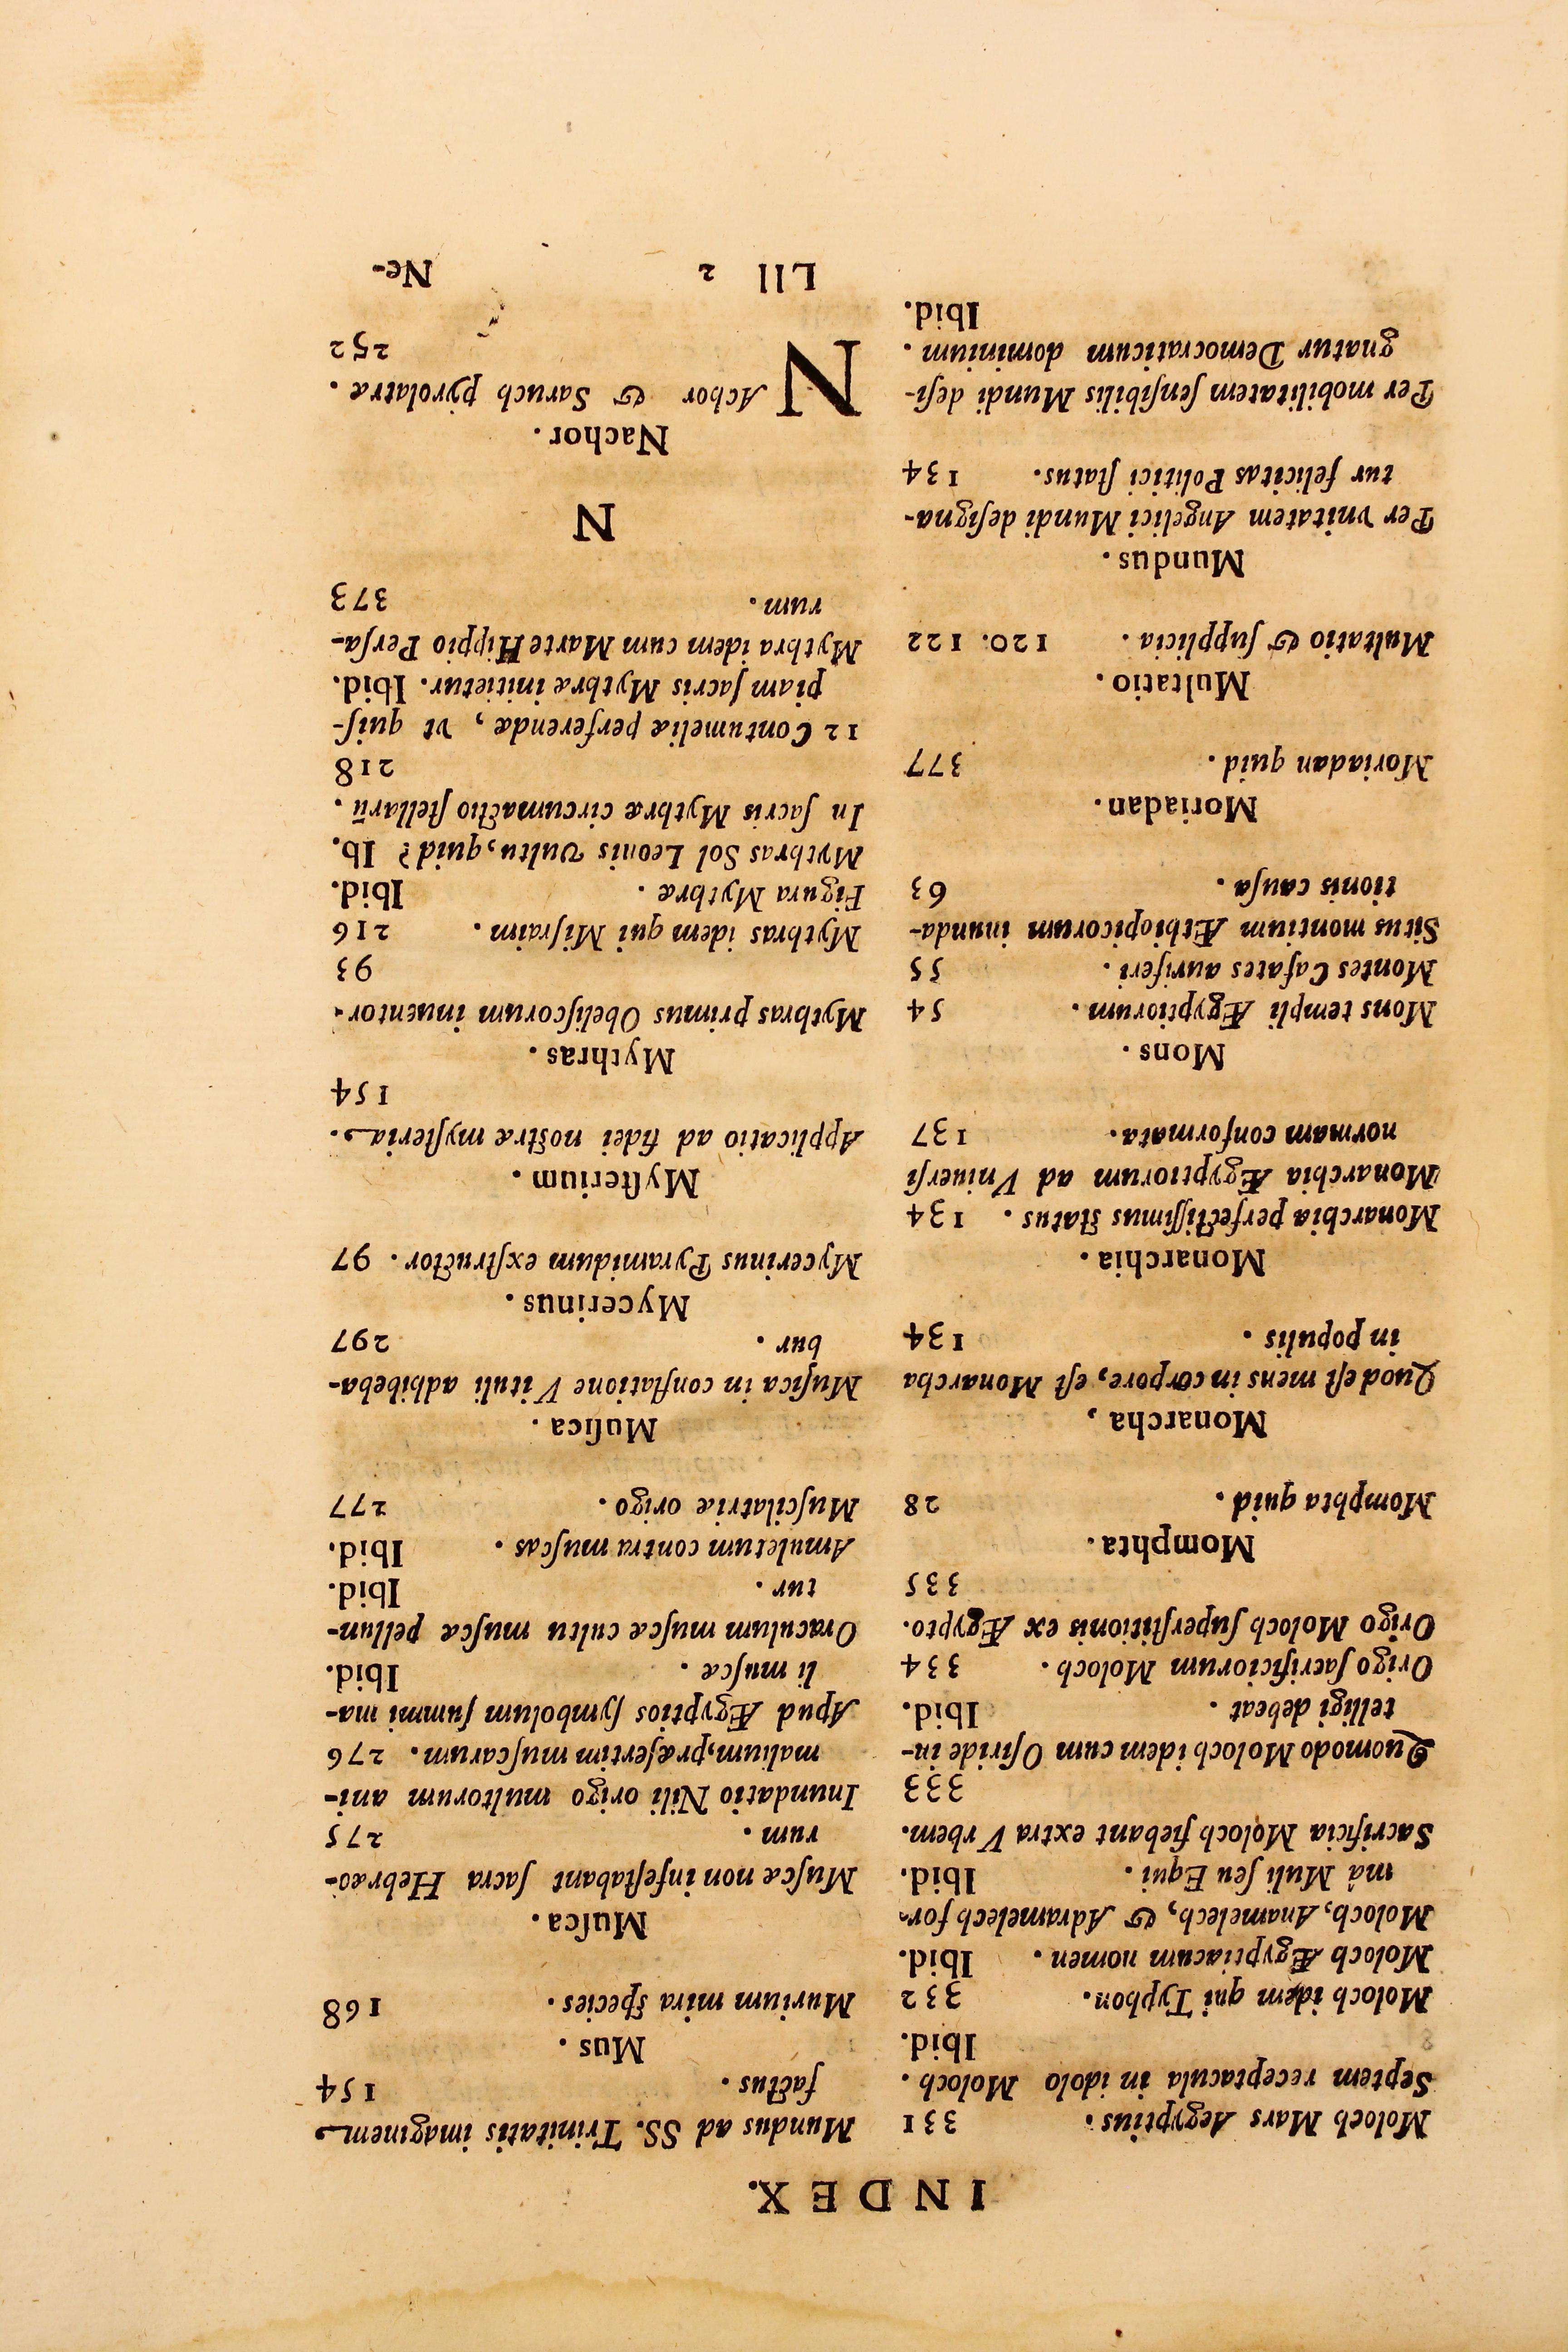 INDEX.
Moloch Mars Aegyptius. 331
Septem receptacula in idolo Moloch.
Ibid.
Moloch idem qui Typhon. 332
Moloch Ægyptiacum nomen. Ibid.
Moloch, Anamelech, & Adramelech for-
mâ Muli ſeu Equi. Ibid.
Sacrificia Moloch fiebant extra Vrbem.
333
Quomodo Moloch idem cum Oſiride in-
telligi debeat. Ibid.
Origo ſacrificiorum Moloch. 334
Origo Moloch ſuperſtitionis ex Ægypto.
335
Momphta.
Mompbta quid. 28
Monarcha,
Quod eſt mens in corpore, eſt Monarcha
in populis. 134
Monarchia.
Monarchia perfectiſſimus ſtatus. 134
Monarchia Ægyptiorum ad Vniuerſi
normam conformata. 137
Mons.
Mons templi Ægyptiorum. 54
Montes Cafates auriferi. 55
Situs montium Æthiopicorum inunda-
tionis cauſa. 63
Moriadan.
Moriadan quid. 377
Multatio.
Multatio & ſupplicia. 120. 122
Mundus.
Per vnitatem Angelici Mundi deſigna-
tur felicitas Politici ſtatus. 134
Per mobilitatem ſenſibilis Mundi deſi-
gnatur Democraticum dominium.
Ibid.
Mundus ad SS. Trinitatis imaginem
factus. 154
Mus.
Murium mira ſpecies. 168
Muſca.
Muſcæ non infeſtabant ſacra Hebræo-
rum. 275
Inundatio Nili origo multorum ani-
malium, præſertim muſcarum. 276
Apud Ægyptios ſymbolum ſummi ma-
li muſcæ. Ibid.
Oraculum muſcæ cultu muſcæ pellun-
tur. Ibid.
Amuletum contra muſcas. Ibid.
Muſcilatriæ origo. 277
Muſica.
Muſica in conflatione Vituli adhibeba-
bur. 297
Mycerinus.
Mycerinus Pyramidum exſtructor. 97
Myſterium.
Applicatio ad fidei noſtræ myſteria.
154
Mythras.
Mythras primus Obeliſcorum inuentor.
93
Mythras idem qui Miſraim. 216
Figura Mythræ. Ibid.
Mythras Sol Leonis vultu, quid? Ib.
In ſacris Mythræ circumactio ſtellarū.
218
12 Contumeliæ perferendæ, vt quiſ-
piam ſacris Mythræ initietur. Ibid.
Mythra idem cum Marte Hippio Perſa-
rum. 373
N
Nachor.
NAchor & Saruch pyrolatræ.
252
Lll 2 Ne-